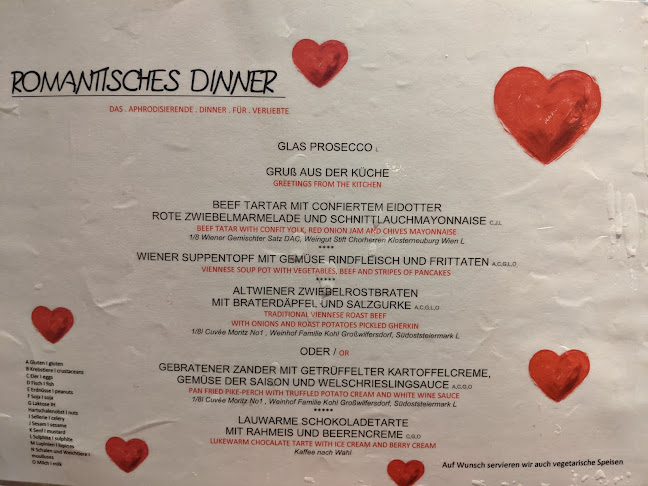 ROMANTISCHES DINNER
DAS . APHRODISIERENDE . DINNER . FÜR . VERLIEBTE
GLAS PROSECCO L
GRUß AUS DER KÜCHE
GREETINGS FROM THE KITCHEN
BEEF TARTAR MIT CONFIERTEM EIDOTTER
ROTE ZWIEBELMARMELADE UND SCHNITTLAUCHMAYONNAISE C,J,L
BEEF TATAR WITH CONFIT YOLK, RED ONION JAM AND CHIVES MAYONNAISE
1/8 Wiener Gemischter Satz DAC, Weingut Stift Chorherren Klosterneuburg Wien L
****
WIENER SUPPENTOPF MIT GEMÜSE RINDFLEISCH UND FRITTATEN A,C,G,L,O
VIENNESE SOUP POT WITH VEGETABLES, BEEF AND STRIPES OF PANCAKES
*****
ALTWIENER ZWIEBELROSTBRATEN
MIT BRATERDÄPFEL UND SALZGURKE A,C,G,L,O
TRADITIONAL VIENNESE ROAST BEEF
WITH ONIONS AND ROAST POTATOES PICKLED GHERKIN
1/8l Cuvée Moritz No1 , Weinhof Familie Kohl Großwilfersdorf, Südoststeiermark L
ODER / OR
GEBRATENER ZANDER MIT GETRÜFFELTER KARTOFFELCREME,
GEMÜSE DER SAISON UND WELSCHRIESLINGSAUCE A,C,G,O
PAN FRIED PIKE-PERCH WITH TRUFFLED POTATO CREAM AND WHITE WINE SAUCE
1/8l Cuvée Moritz No1 , Weinhof Familie Kohl Großwilfersdorf, Südoststeiermark L
*****
LAUWARME SCHOKOLADETARTE
MIT RAHMEIS UND BEERENCREME C,G,O
LUKEWARM CHOCALATE TARTE WITH ICE CREAM AND BERRY CREAM
Kaffee nach Wahl
A Gluten I gluten
B Krebstiere I crustaceans
C Eier I eggs
D Fisch I fish
E Erdnüsse I peanuts
F Soja I soja
G Laktose IH
Hartschalenobst I nuts
I Sellerie I celery
I Sesam I sesame
K Senf I mustard
L Sulphite I sulphite
M Lupinien I lupines
N Schalen und Weichtiere I
molluses
O Milch I milk
Auf Wunsch servieren wir auch vegetarische Speisen